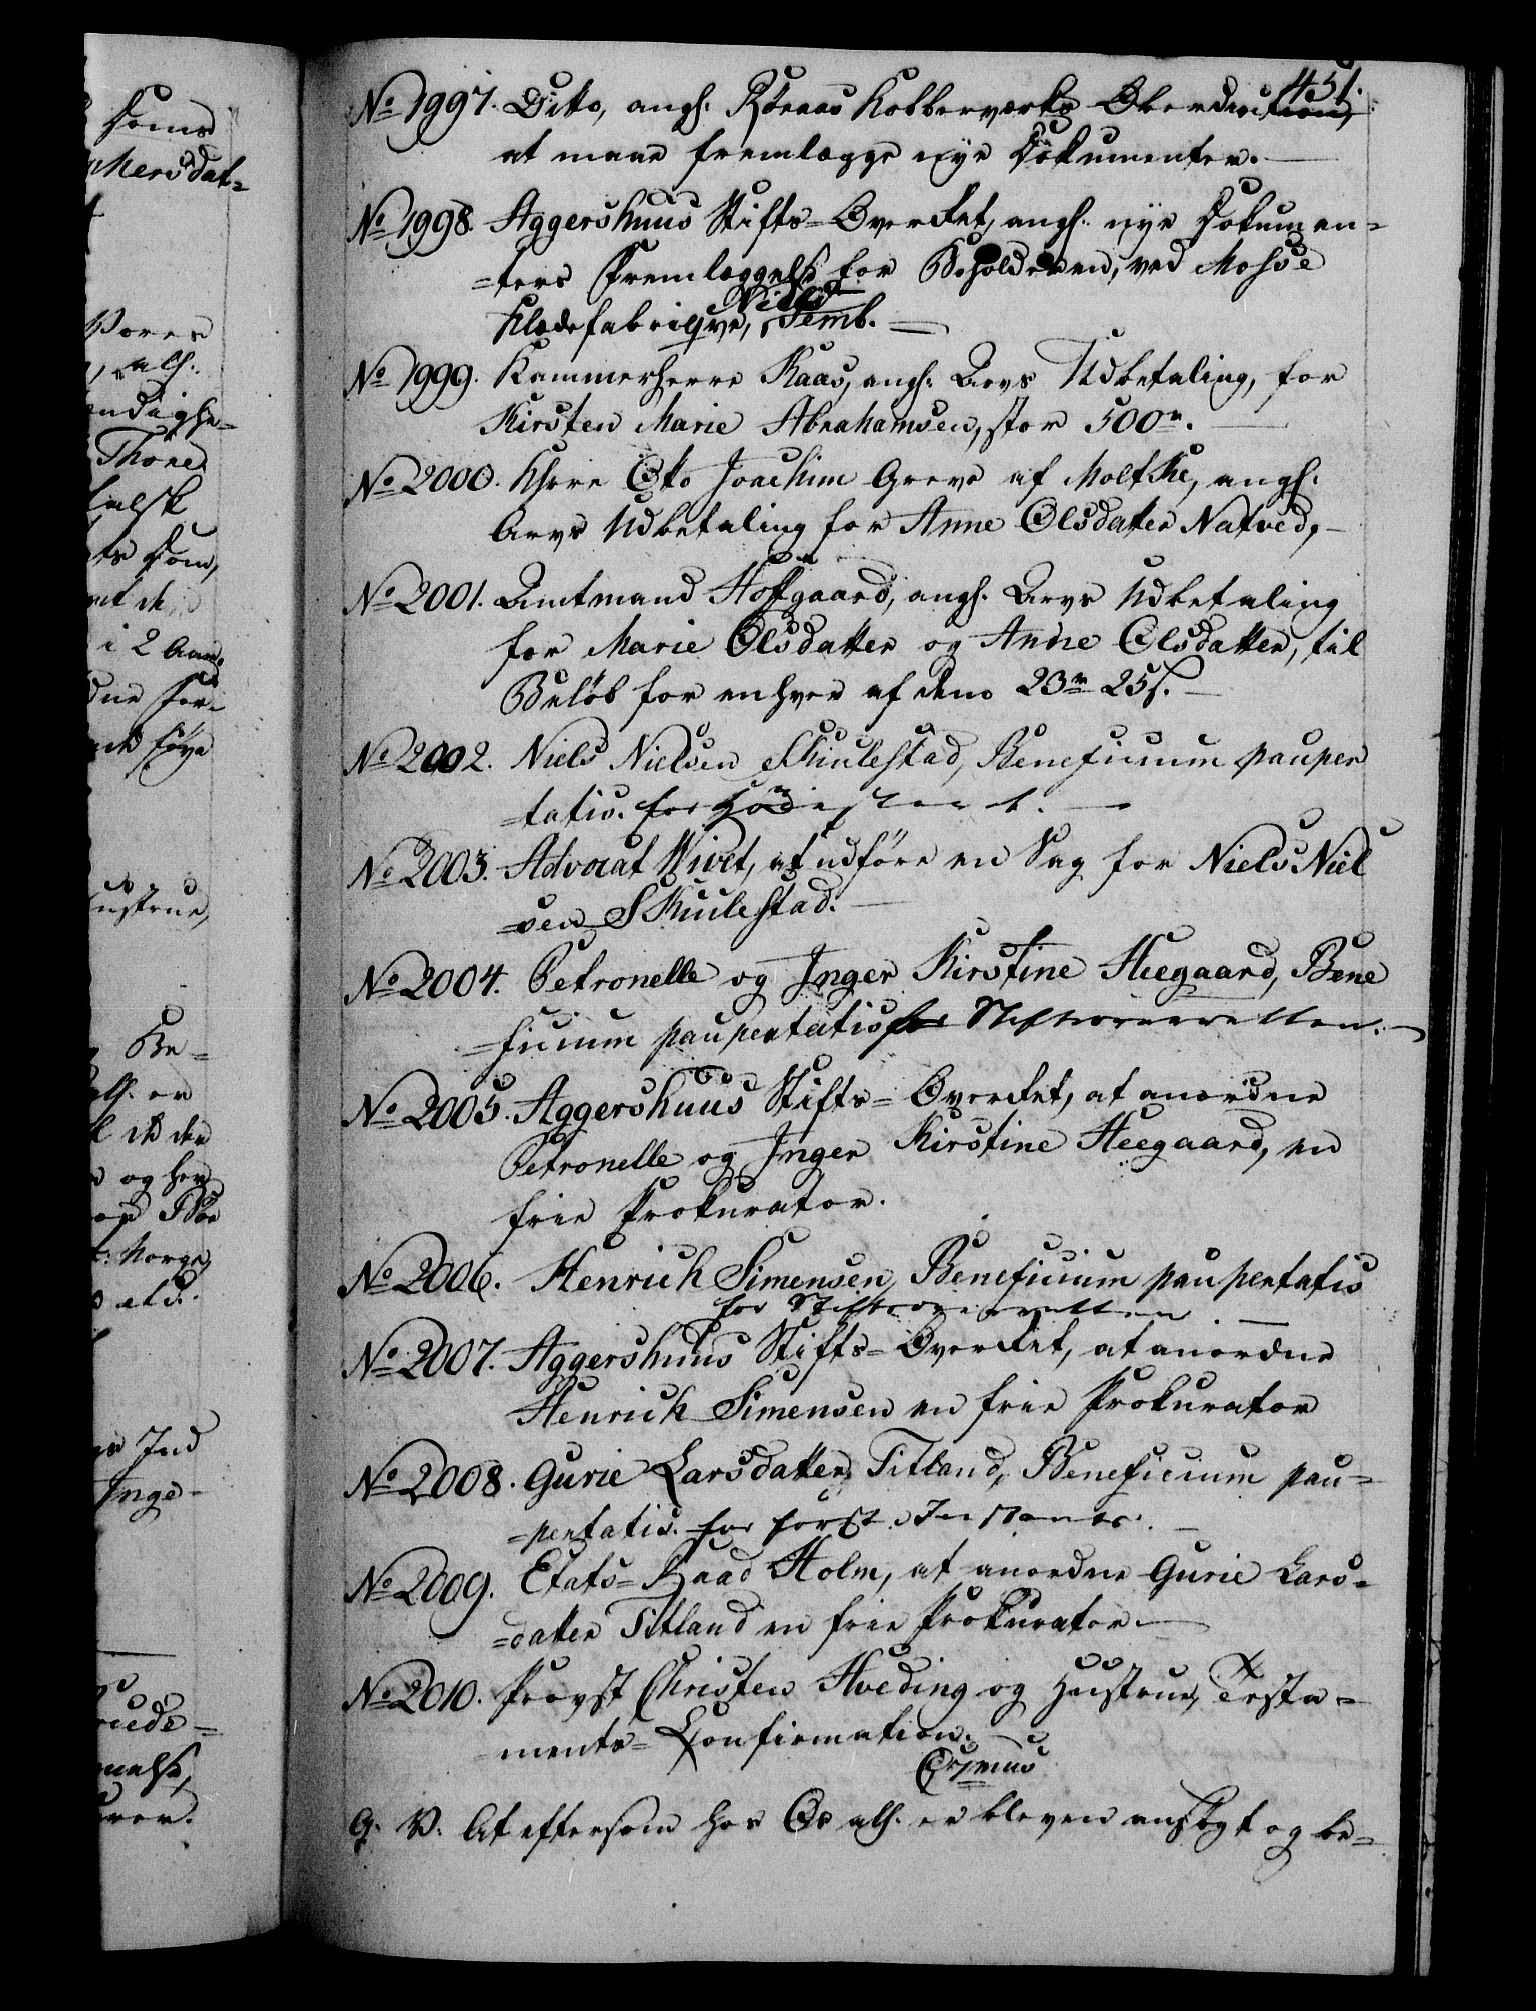 451.
No 1997. Ditto, angl. Röraas Kobberværks Oberdirection,
at maae fremlægge nye Dokumenter.
No 1998. Aggershuus Stifts-OverRet, angl. nye Dokumen-
-ters Fremlæggelse for Beholderen, ved Mosse
Klædefabriqve, Niels Semb.
No 1999. Kammerherre Kaas, angl. Arvs Udbetaling, for
Kirsten Marie Abrahamsen, stor 500 r.
No 2000. Hrre Otto Joachim Greve af Moltke, angl.
Arvs Udbetaling for Anne Olsdatter Natved,
No 2001. Amtmand Hoffgaard, angl. Arvs Udbetaling
for Marie Olsdatter og Anne Olsdatter, til
Beløb for enhver af dem 23 r 25 s.
No 2002. Niels Nielsen Skiulestad, Beneficium pauper
-tatis. for Höiesteret.
No 2003. Advocat Wivet, at udföre en Sag for Niels Niel
-sen Skiulestad.
No 2004. Petronelle og Inger Kirstine Heegaard, Bene
-ficium paupertatis for Stiftsoverretten.
No 2005. Aggershuus Stifts-OverRet, at anordne
Petronelle og Inger Kirstine Heegaard, en
frie Prokurator.
No 2006. Henrich Simensen, Beneficium paupertatis
for Stiftsoverretten
No 2007. Aggershuus Stifts-OverRet, at anordne
Henrich Simensen en frie Prokurator
No 2008. Gurie Larsdatter Titland, Beneficium pau-
-pertatis. for förste Instants.
No 2009. Etats-Raad Holm, at anordne Gurie Lars-
-datter Titland en frie Prokurator
No 2010. Provst Christen Hveding og Hustrue, Testa-
ments-Confirmation.
G. V. At eftersom hos Os alh. er bleven ansögt og be-